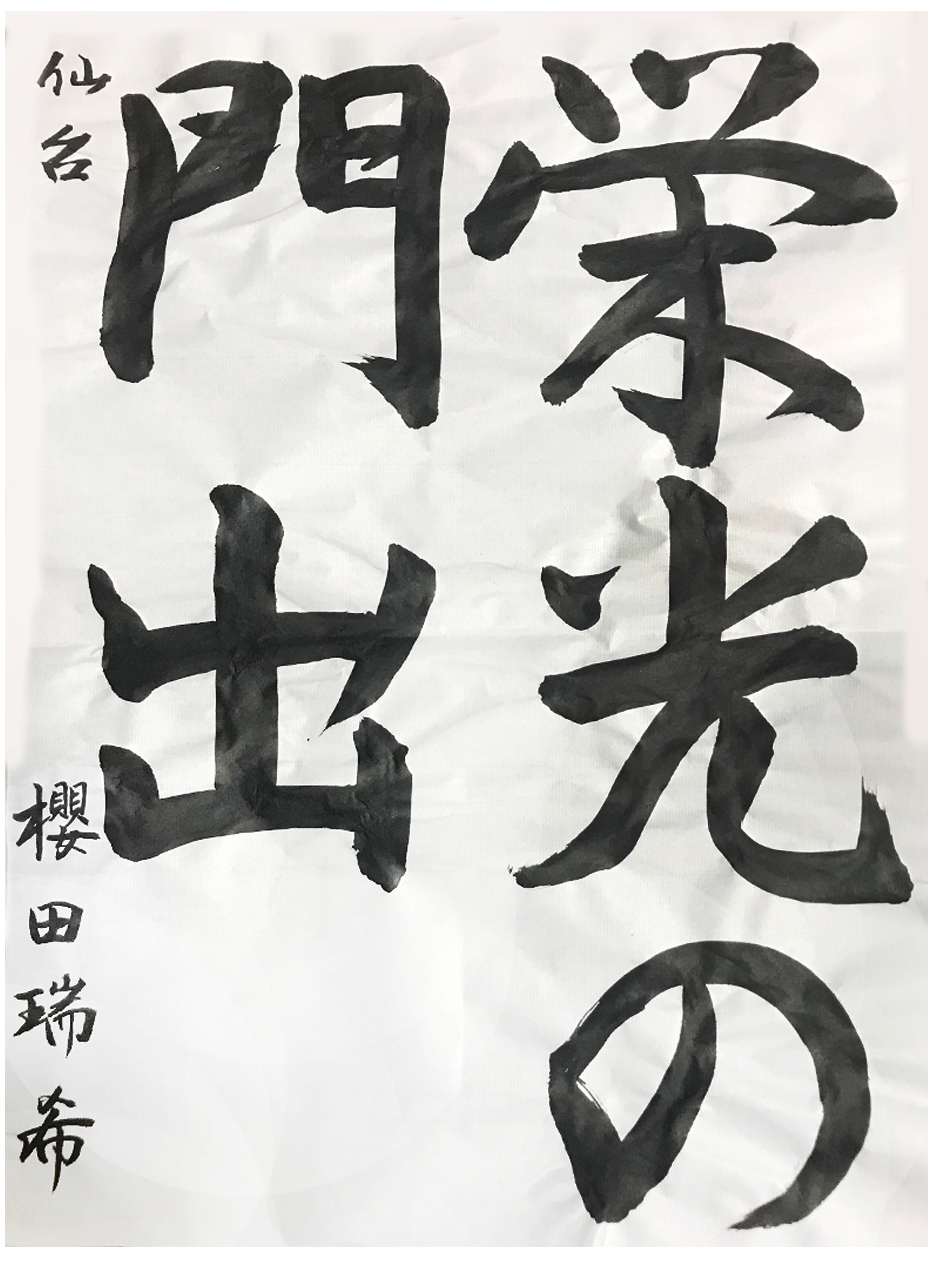 栄光の
門出
仙台
櫻田瑞希